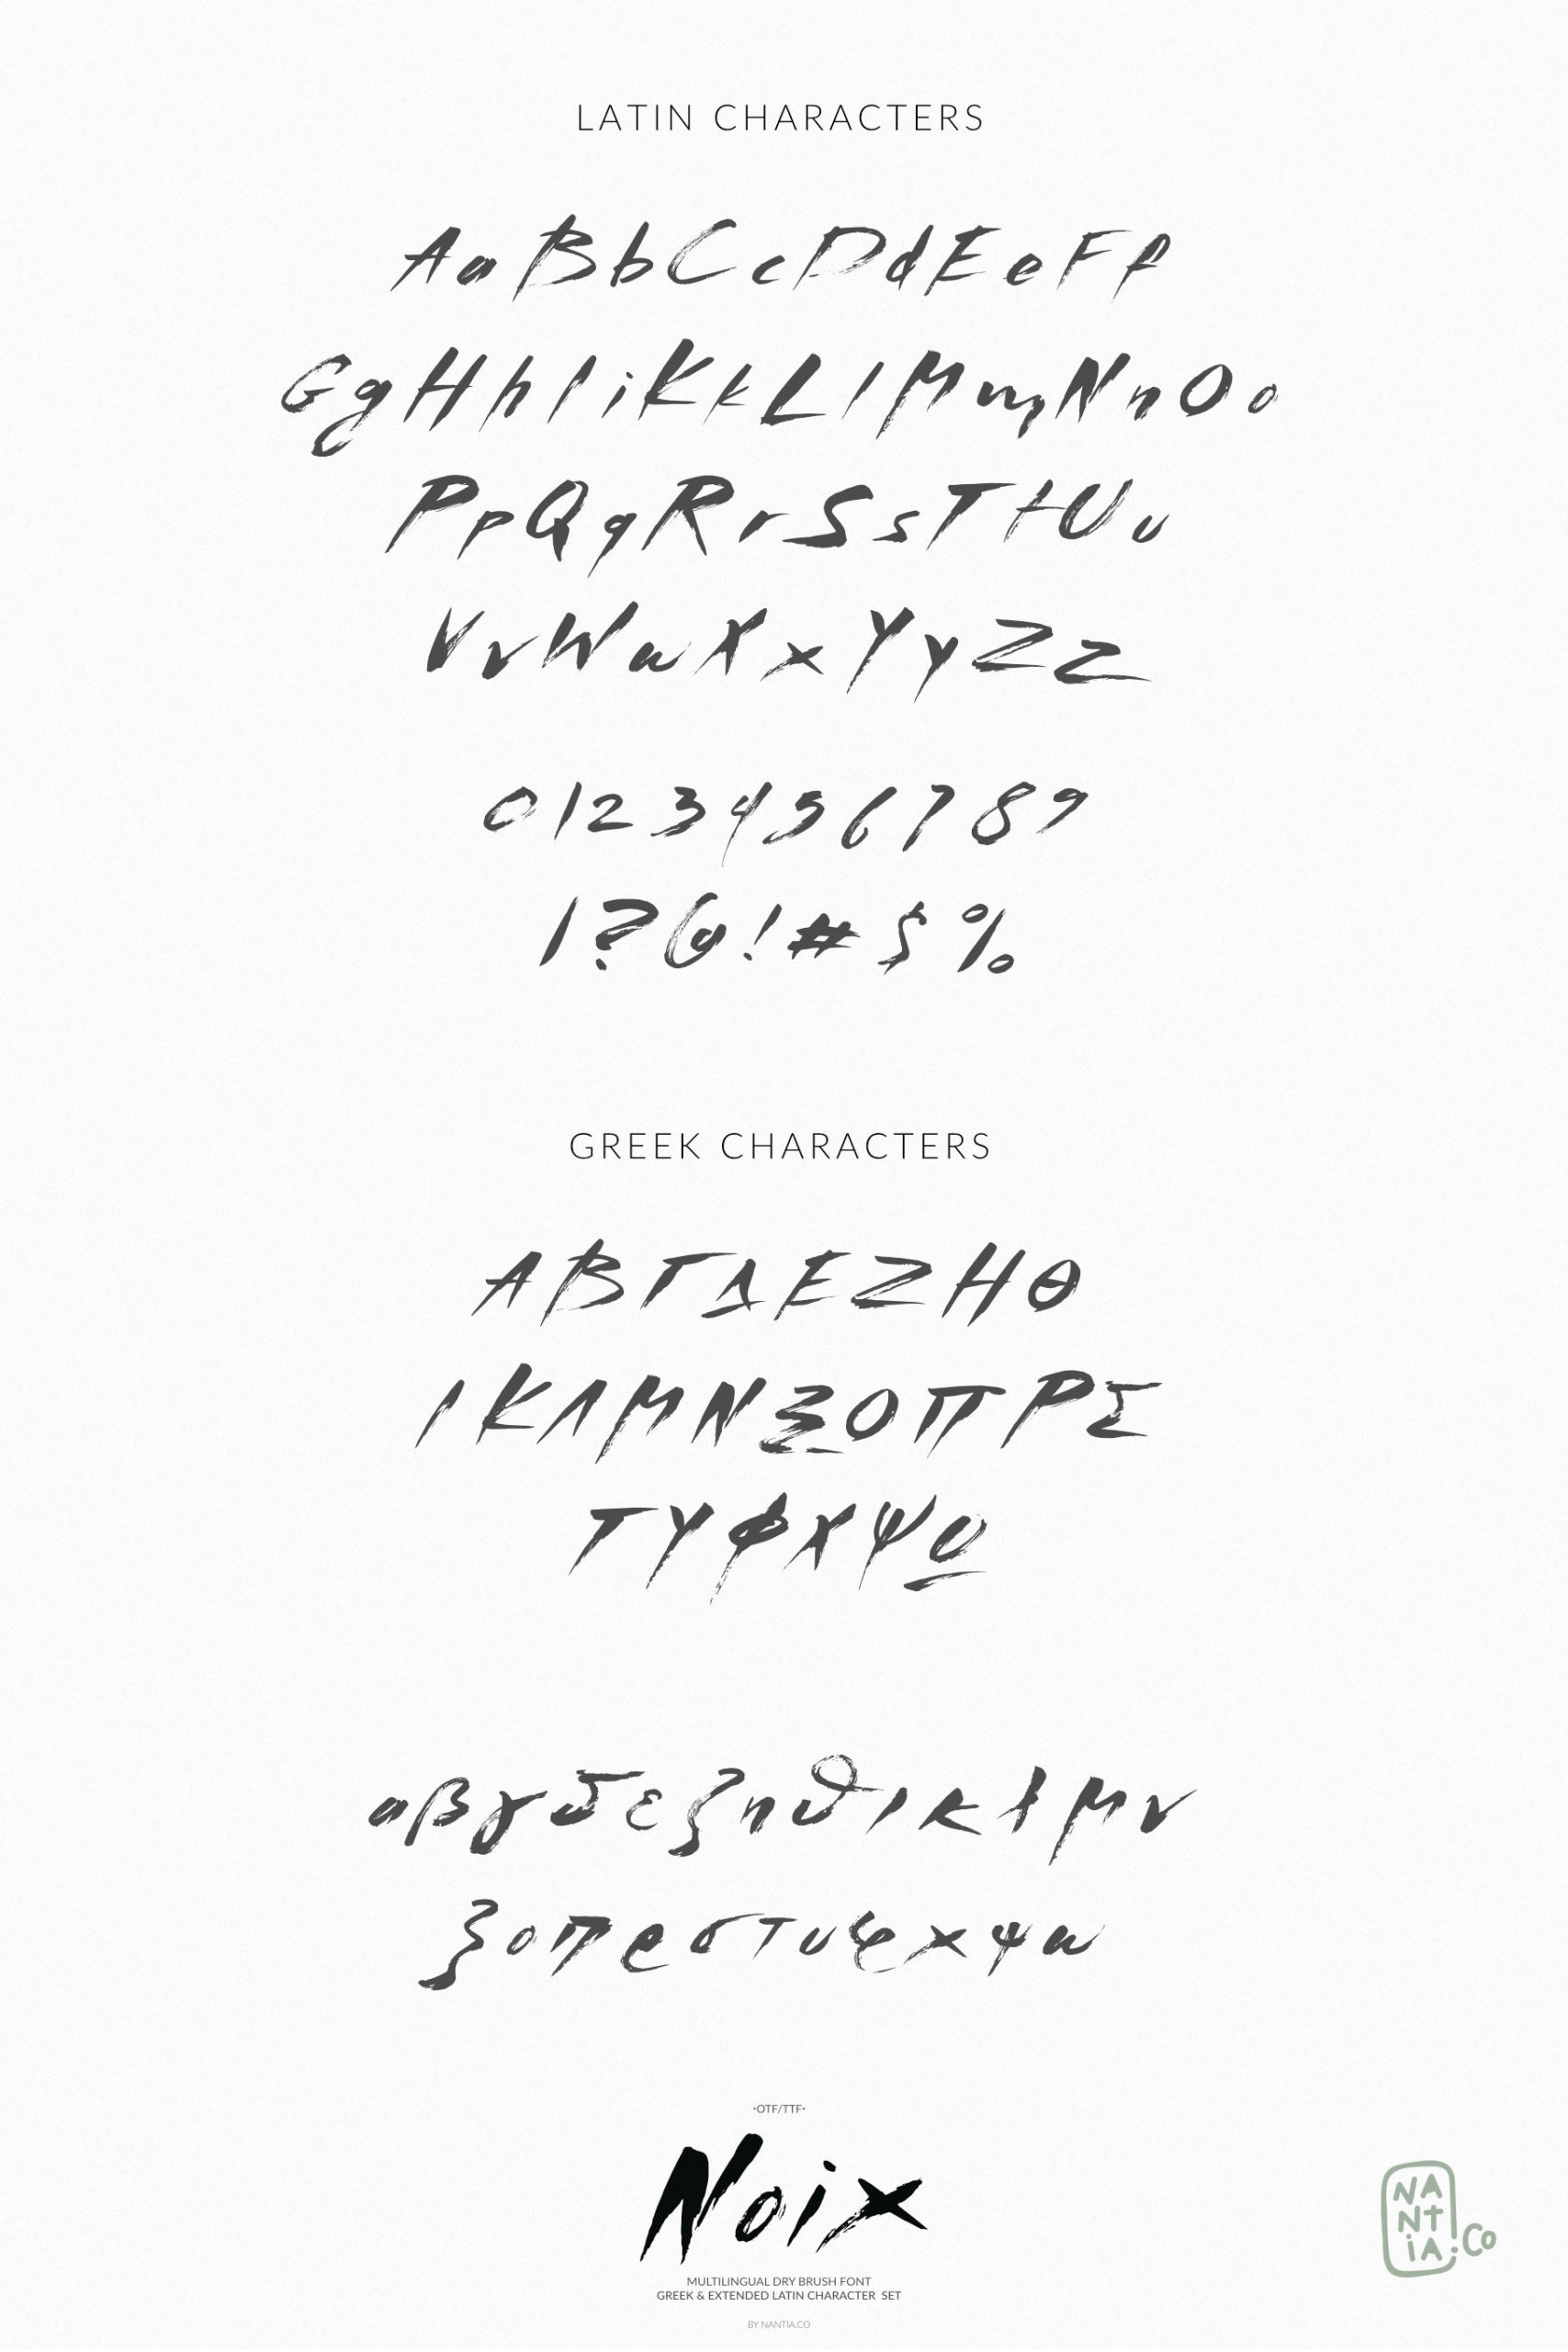 LATIN CHARACTERS
AaBbCcDdEeFf
GgHhIiKkLlMmNnOo
PpQqRrSsTtUu
VvWwXxYyZz
0123456789
/?@!#$%
GREEK CHARACTERS
ΑΒΓΔΕΖΗΘ
ΙΚΛΜΝΞΟΠΡΣ
ΤΥΦΧΨΩ
αβγδεζηθικλμν
ξοπρστυφχψω
•OTF/TTF•
Noix
MULTILINGUAL DRY BRUSH FONT
GREEK & EXTENDED LATIN CHARACTER SET
BY NANTIA.CO
NA
Nt
iA.Co